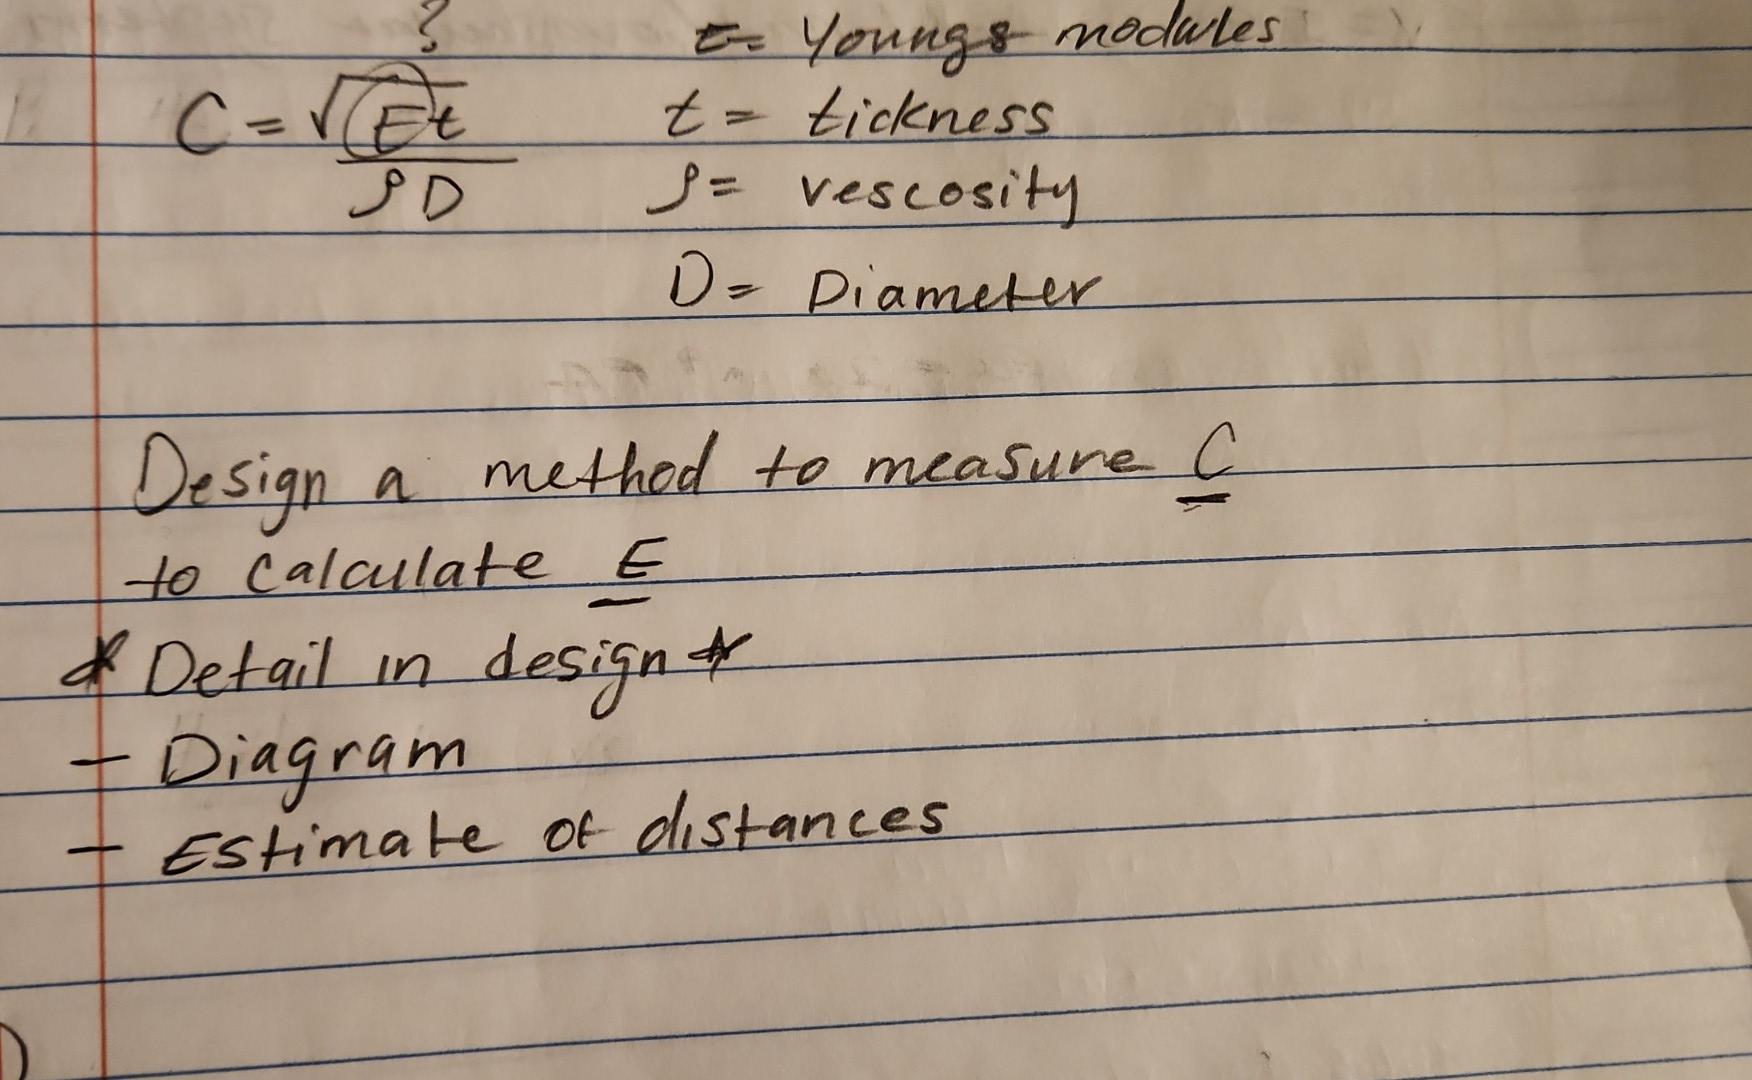 ?
E= Youngs modules
C = √Et / ρD
t = tickness
ρ = vescosity
D = Diameter
Design a method to measure C
to calculate E
* Detail in design *
- Diagram
- Estimate of distances